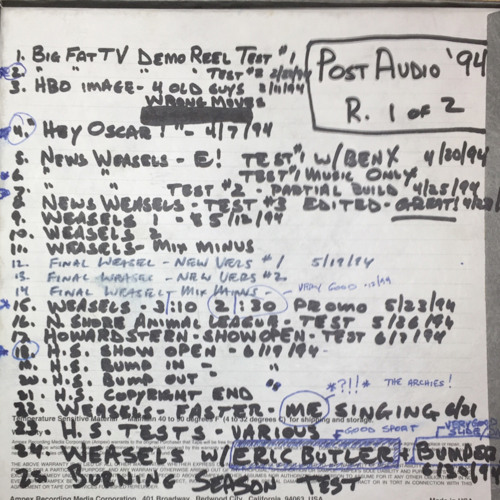 POST AUDIO '94
R. 1 OF 2
1. BIG FAT TV DEMO REEL TEST #1
2. " " " TEST #2
3. HBO IMAGE - 4 OLD GUYS 2/11/94
WRONG MOVES
* 4. "HEY OSCAR!" - 4/7/94
5. NEWS WEASELS - E! TEST #1 W/BEN X 4/20/94
* 6 " " TEST #1 MUSIC ONLY
* 7 " " TEST #2 - PARTIAL BUILD 4/25/94
8 NEWS WEASELS - TEST #3 EDITED - GREAT!
9. WEASELS 1 - 5/12/94
10. WEASELS 2
11. WEASELS - MIX MINUS
12. FINAL WEASEL - NEW VERS #1 5/19/94
13. FINAL WEASEL - NEW VERS #2
14 FINAL WEASEL MIX MINUS - VERY GOOD
* 15. WEASELS - 3:10 2:30 PROMO 5/23/94
16. N. SHORE ANIMAL LEAGUE - TEST 5/26/94
17. HOWARD STERN - SHOW OPEN - TEST 6/17/94
* 18. H.S. SHOW OPEN - 6/19/94 -
19. H.S. BUMP IN - "
20. H.S. BUMP OUT - "
21. H.S. COPYRIGHT END
*?!!* THE ARCHIES!
22. WEASELS - FASTER - ME SINGING 6/21
Temperature Sensitive Material - Maintain 40 to 90 degrees F (4 to 32 degrees C) for shipping and storage.
23. H.S. TEST -
GOOD SPORT
VERY GOOD
24. WEASELS W/ERIC BUTLER + BUMPER
25 BURNING SEASON TEST
Ampex Recording Media Corporation, 401 Broadway, Redwood City, California 94063, USA